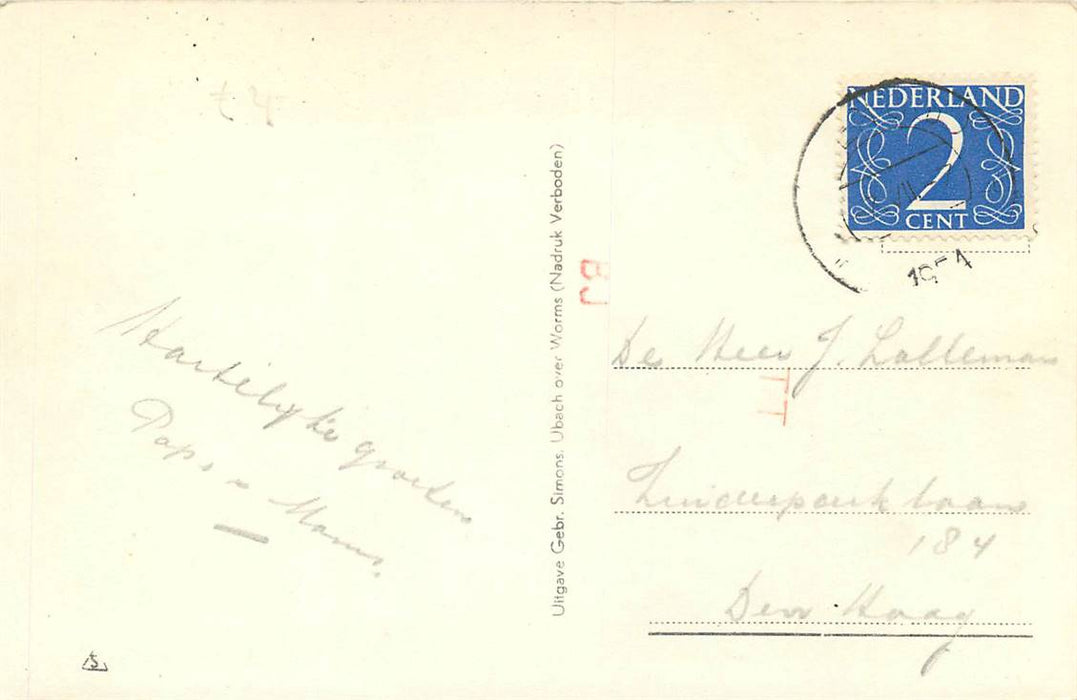 NEDERLAND
2
CENT
1954
Hartelijke groeten
Paps en Mams.
Uitgave Gebr. Simons, Ubach over Worms (Nadruk Verboden)
BJ
TT
De Heer J. Lalleman
Zuiderparklaan
184
Den Haag
S